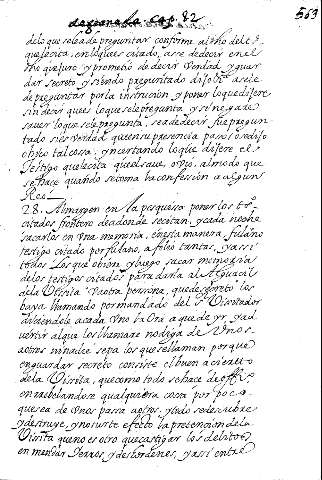 Cap. 82
503
delo que se le a de preguntar conforme al dho del t.º
que le cita, en los que es citado, a se de decir en el
dho que jure y prometio de decir verdad, y guar
dar secreto y siendo preguntado dijo etc. a se le
de preguntar por la instrucion y poner lo que dijere
sin decir que es lo que se le pregunta, y si niega de
sauer lo que se le pregunta, se a de decir, fue pregun
tado si es verdad que en su presencia paso o se dijo
o hiço tal cosa, y no otra cosa lo que dijere el
testigo que le cita que el suso, oyò, al modo que
se hace quando se toma la confession a algun
Reo
28. Al margen en la pesquisa poner los t.os
citados frontero de adonde se citan, y cada noche
sacarlos en una memoria, en esta manera, fulano
testigo citado por fulano, a fojas tantas, y assi
todos los que y luego sacar memoria
de los testigos citados para darla al Alguacil
de la Visita, y a otra persona, que de secreto los
baya llamando por mandado del s.r Visitador
diciendole a cada uno la ora a que de yr y ad
uertir a l que los llamare no diga de unos
a otros ni nadie sepa los que se llaman porque
en guardar secreto consiste el buen acierto
de la Visita, que como todo se hace de
en rasbelandose qualquiera cosa por poca
que sea de unos passa a otros, y todo se descubre
y destruye, y no surte efecto la pretencion de la
Visita que no es otro que castigar los delitos
enmendar yerros, y desordenes, y assi entre